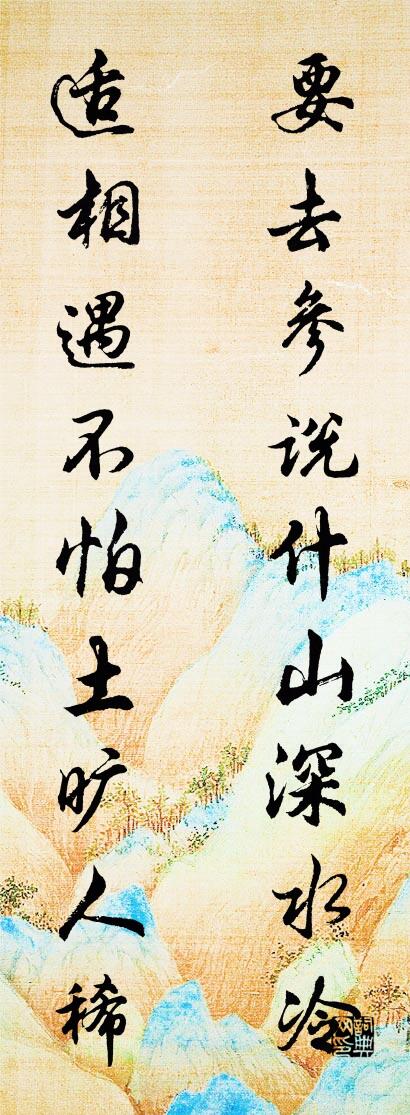 要去參说什山深水冷
适相遇不怕土旷人稀